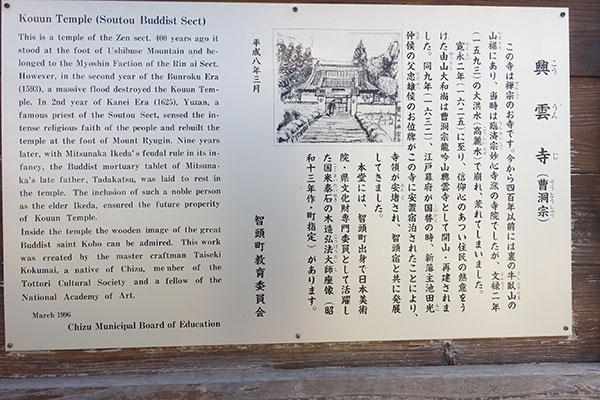 Kouun Temple (Soutou Buddist Sect)
This is a temple of the Zen sect. 400 years ago it
stood at the foot of Ushibuse Mountain and be-
longed to the Myoshin Faction of the Rin ai Sect.
However, in the second year of the Bunroku Era
(1593), a massive flood destroyed the Kouun Tem-
ple. In 2nd year of Kanei Era (1625), Yuzan, a
famous priest of the Soutou Sect, sensed the in-
tense religious faith of the people and rebuilt the
temple at the foot of Mount Ryugin. Nine years
later, with Mitsunaka Ikeda's feudal rule in its in-
fancy, the Buddhist mortuary tablet of Mitsuna-
ka's late father, Tadakatsu, was laid to rest in
the temple. The inclusion of such a noble person
as the elder Ikeda, ensured the future property
of Kouun Temple.
Inside the temple the wooden image of the great
Buddhist saint Kobo can be admired. This work
was created by the master craftman Taiseki
Kokumai, a native of Chizu, member of the
Tottori Cultural Society and a fellow of the
National Academy of Art.
March 1996
Chizu Municipal Board of Education
興雲寺(曹洞宗)
こう うん じ
この寺は禅宗のお寺です。今から四百年以前には裏の牛臥山の
山裾にあり、当時は臨済宗妙心寺派の寺院でしたが、文禄二年
(一五九三)の大洪水(高麗水)で崩れ、荒れてしまいました。
寛永二年(一六二五)に至り、信仰心のあつい住民の熱意をう
けた由山大和尚は曹洞宗龍吟山興雲寺として開山・再建されま
した。同九年(一六三二)、江戸幕府が国替の時、新藩主池田光
仲侯の父忠雄侯のお位牌がこの寺に安置宿泊されたことにより、
寺領が安堵され、智頭宿と共に発展
してきました。
本堂には、智頭町出身で日本美術
院・県文化財専門委員として活躍し
た国米泰石の木造弘法大師座像(昭
和十三年作・町指定)があります。
平成八年三月
智頭町教育委員会